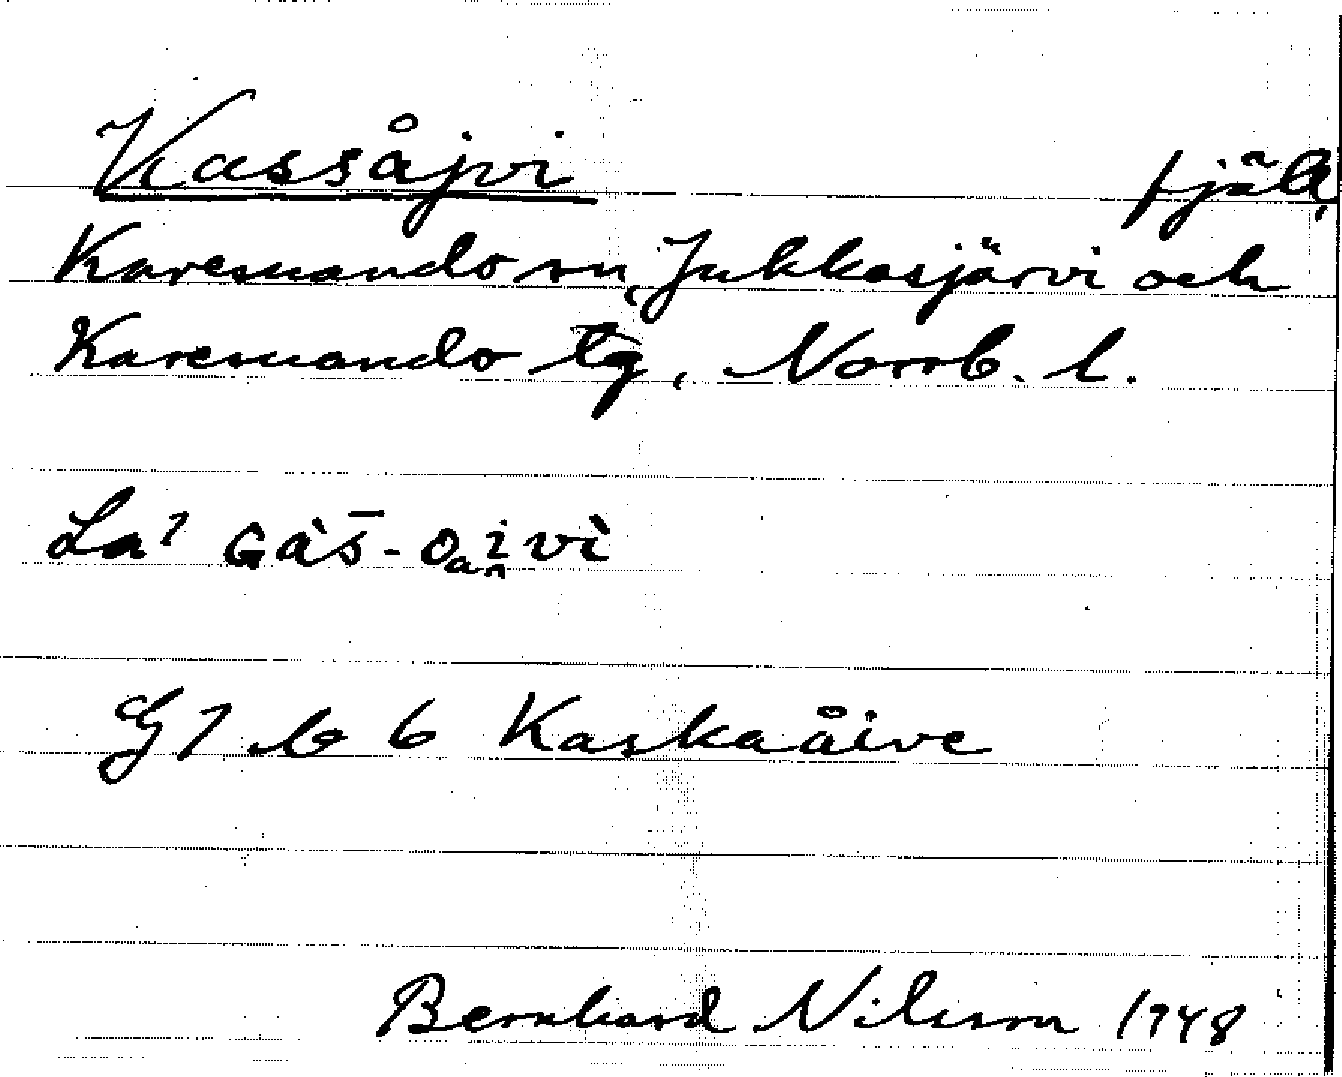 Kassåjvi fjäll,
Karesuando sn, Jukkasjärvi och
Karesuando tg, Norrb. l.
La⁊ Gàs̄-Oₐi̭vì
G⁊ b 6 Kaskaåive
Bernhard Nilsson 1948